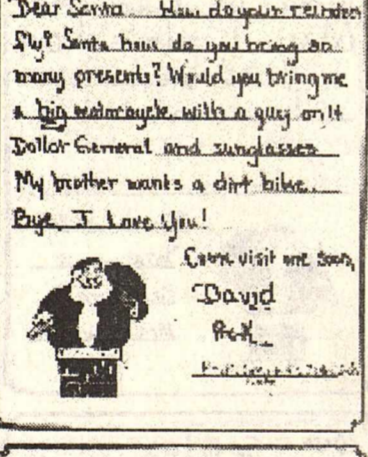 Dear Santa How do your reindeer
fly? Santa how do you bring so
many presents? Would you bring me
a big motorcycle with a guy on it
Dollar General and sunglasses
My brother wants a dirt bike.
Bye, I Love You!
Come visit me soon,
David